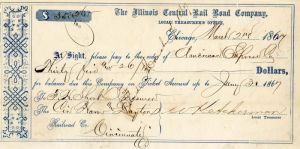 The Illinois Central Rail Road Company,
LOCAL TREASURER'S OFFICE,
Chicago, March 2nd 1867
At Sight, please pay to the order of American Express Co
Thirty five 26/100 Dollars,
for balance due this Company on Ticket Account up to Jany 31 1867
To
Treasurer
To Cin Ham & Dayton
Railroad Co.
Local Treasurer
Cincinnati